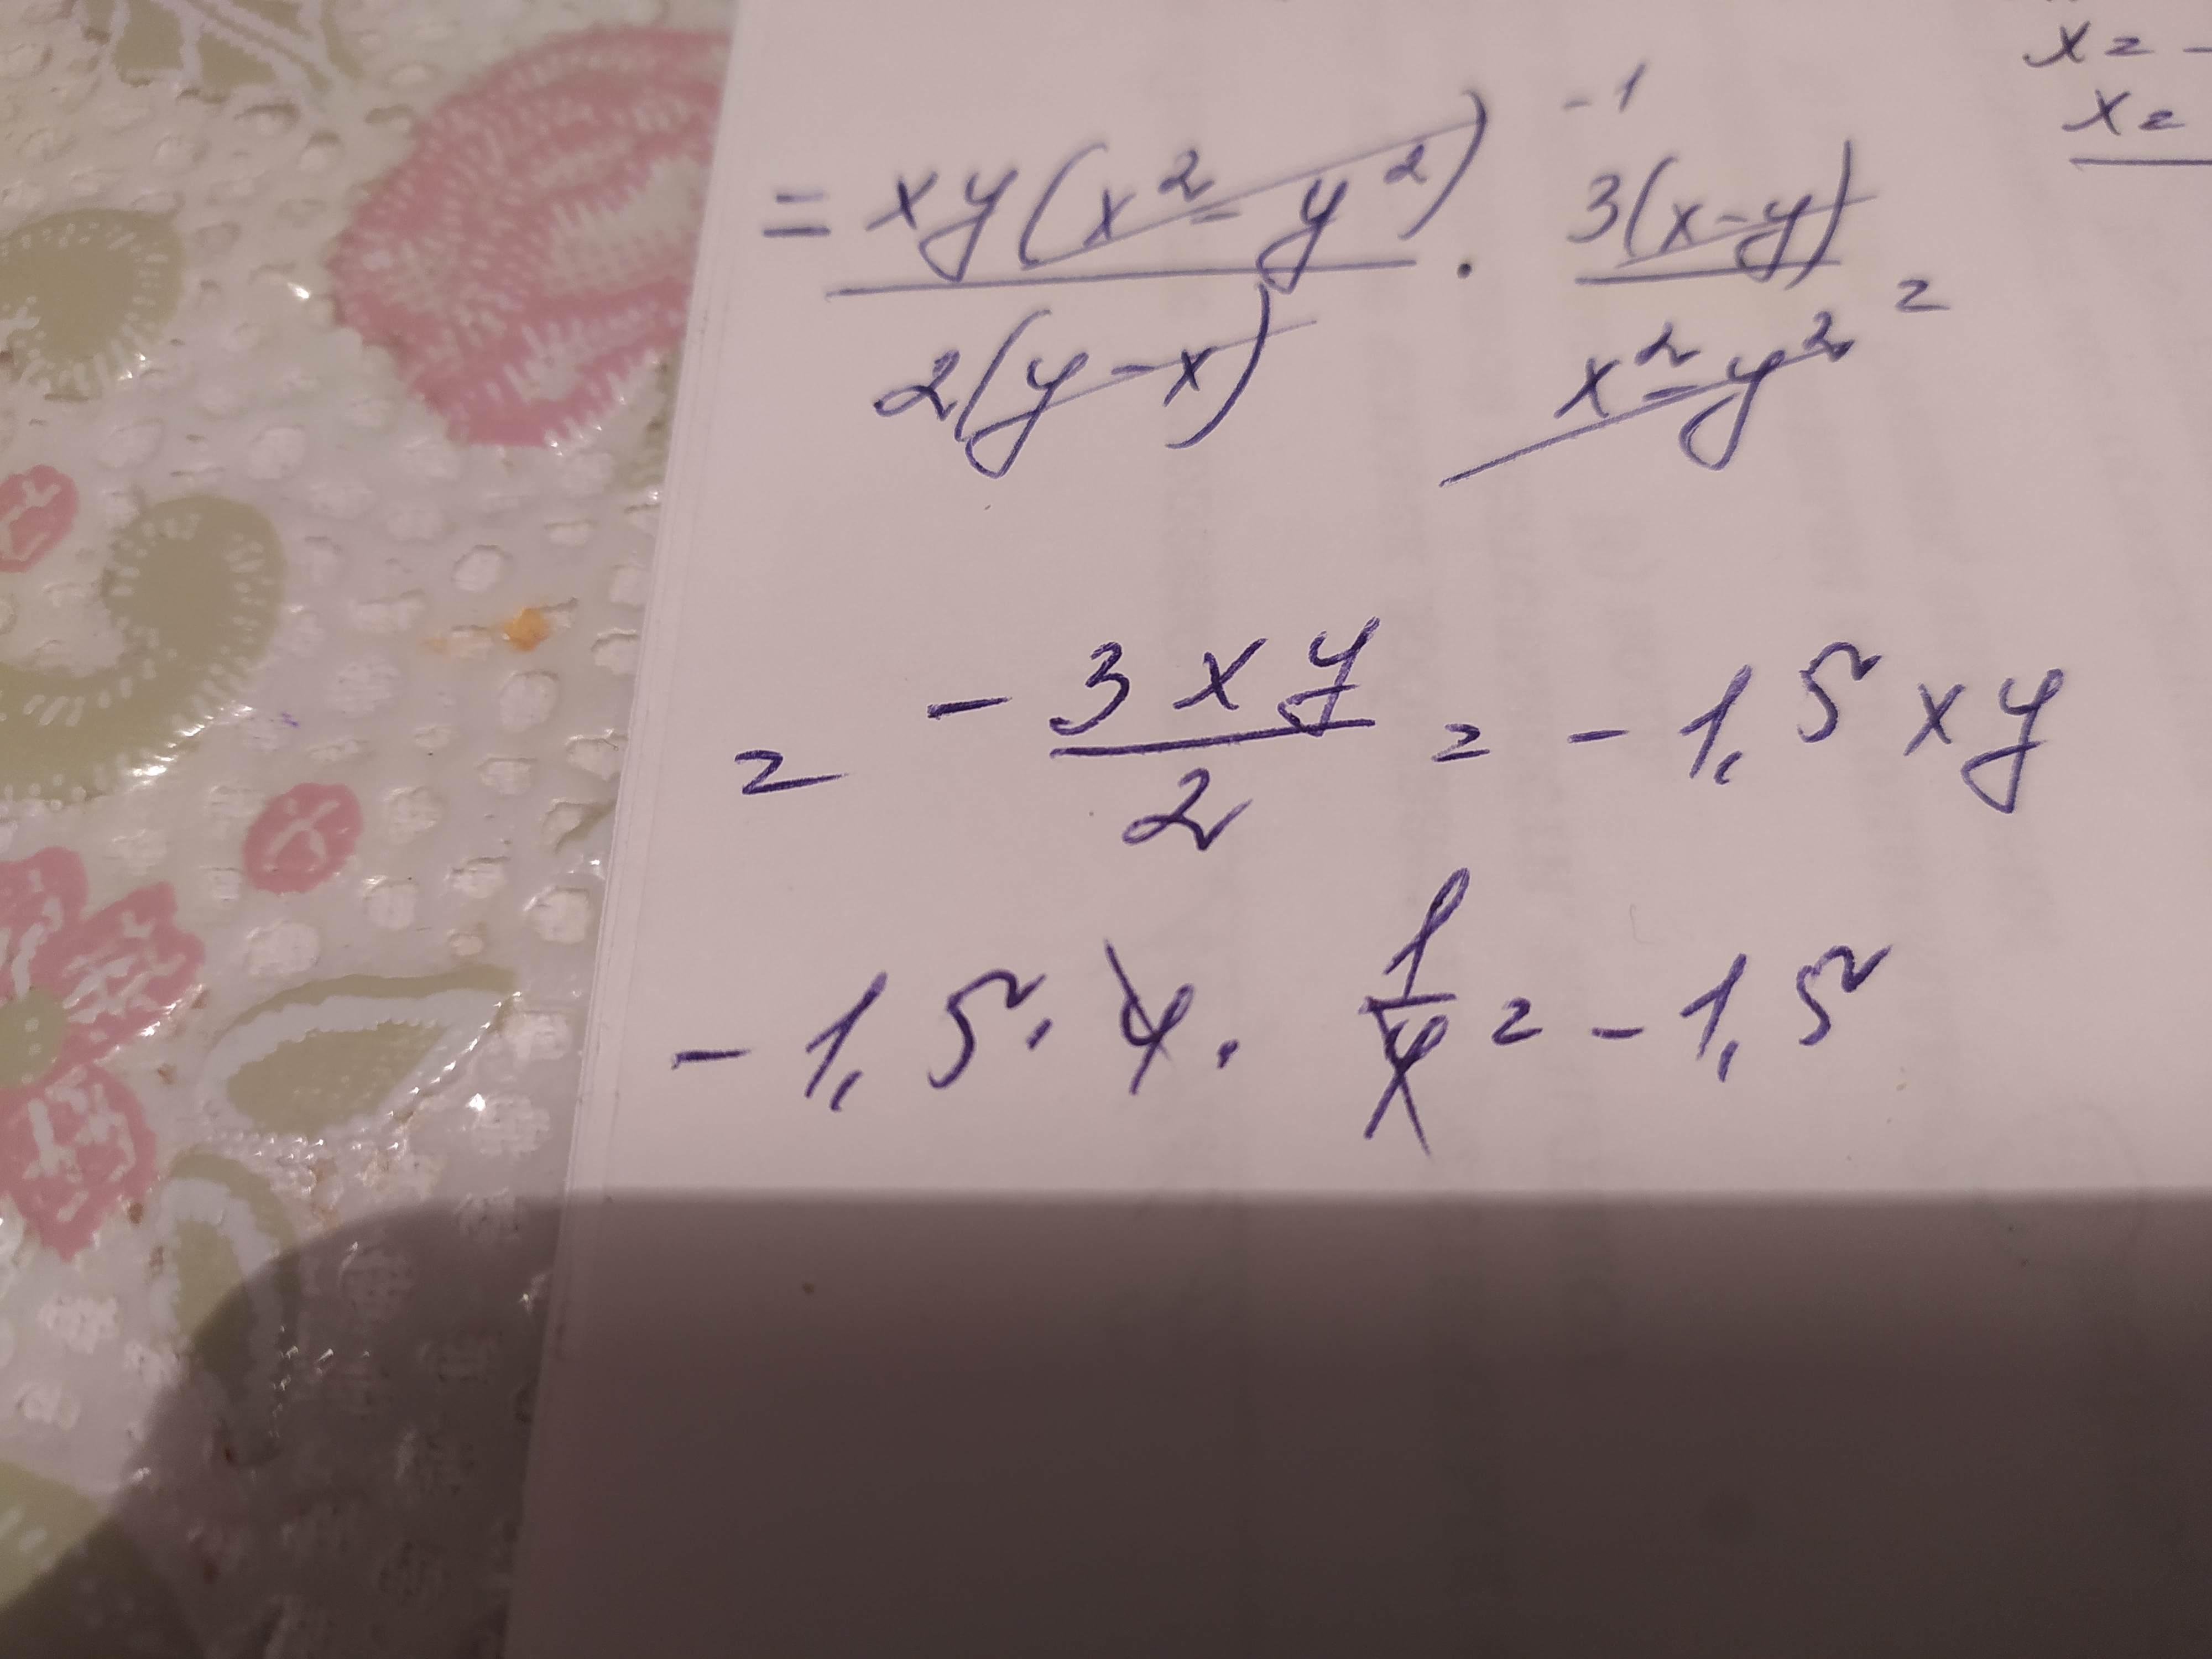 x = -
x =
-1
= xy(x² - y²) / 2(y - x) · 3(x - y) / x² - y² =
= - 3xy / 2 = - 1,5 xy
- 1,5 · 4 · 1/4 = - 1,5